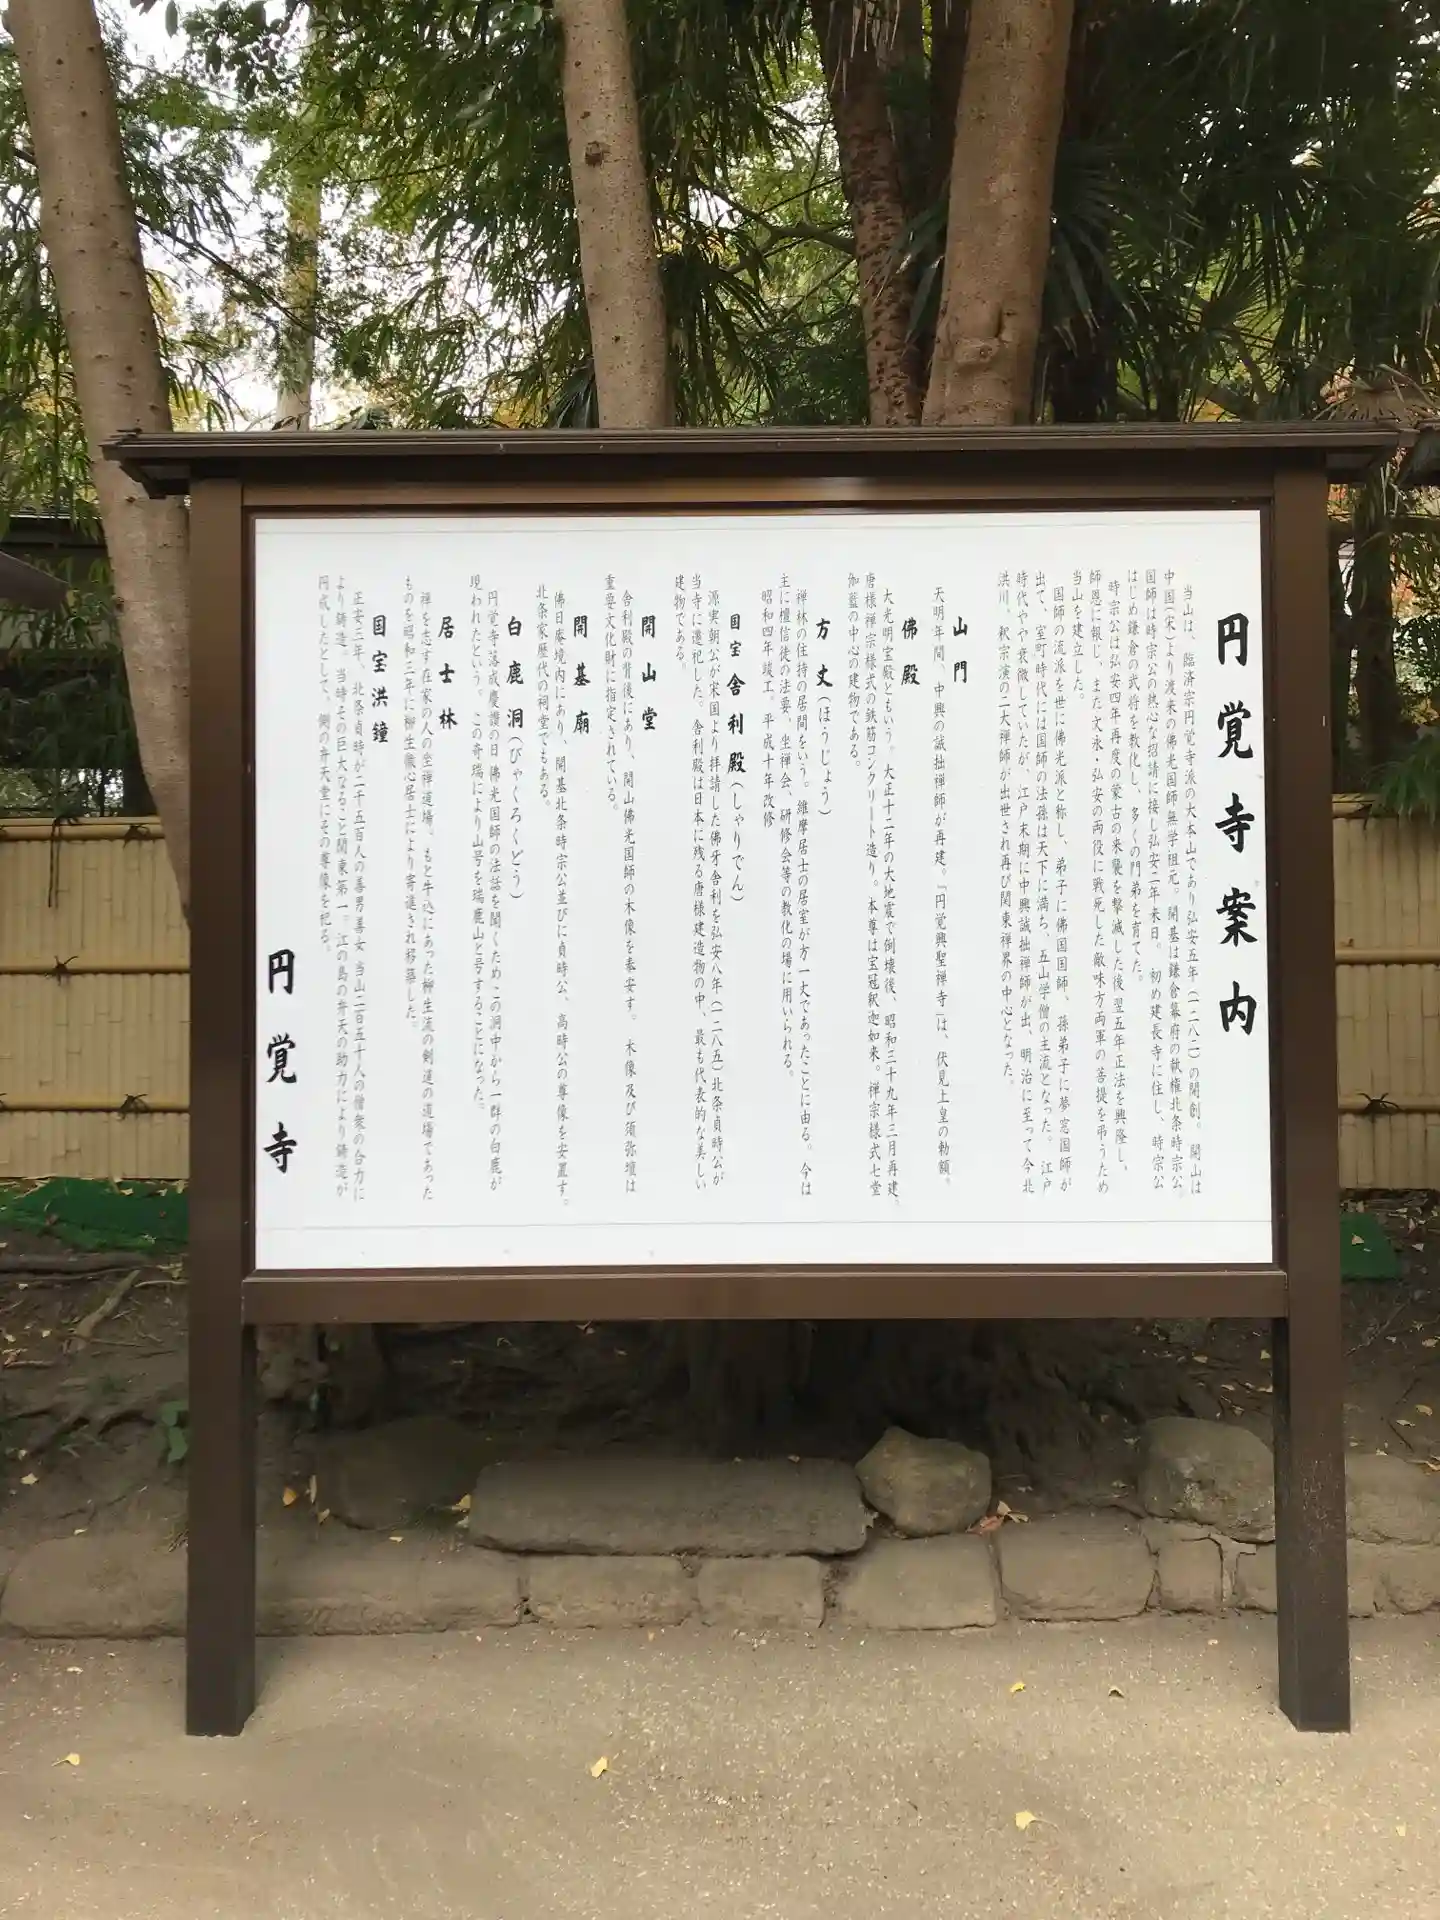 円覚寺案内
当山は、臨済宗円覚寺派の大本山であり弘安五年(一二八二)の開創。開山は
中国(宋)より渡来の佛光国師無学祖元。開基は鎌倉幕府の執権北条時宗公。
国師は時宗公の熱心な招請に接し弘安二年来日。初め建長寺に住し、時宗公
はじめ鎌倉の武将を教化し、多くの門弟を育てた。
時宗公は弘安四年再度の蒙古の来襲を撃滅した後翌五年正法を興隆し、
師恩に報じ、また文永・弘安の両役に戦死した敵味方両軍の菩提を弔うため
当山を建立した。
国師の流派を世に佛光派と称し、弟子に佛国国師、孫弟子に夢窓国師が
出て、室町時代には国師の法孫は天下に満ち、五山学僧の主流となった。江戸
時代やや衰微していたが、江戸末期に中興誠拙禅師が出、明治に至って今北
洪川、釈宗演の二大禅師が出世され再び関東禅界の中心となった。
山門
天明年間、中興の誠拙禅師が再建。「円覚興聖禅寺」は、伏見上皇の勅額。
佛殿
大光明宝殿ともいう。大正十二年の大地震で倒壊後、昭和三十九年三月再建。
唐様禅宗様式の鉄筋コンクリート造り。本尊は宝冠釈迦如来。禅宗様式七堂
伽藍の中心の建物である。
方丈(ほうじょう)
禅林の住持の居間をいう。維摩居士の居室が方一丈であったことに由る。今は
主に檀信徒の法要、坐禅会、研修会等の教化の場に用いられる。
昭和四年竣工。平成十年改修
国宝舎利殿(しゃりでん)
源実朝公が宋国より拝請した佛牙舎利を弘安八年(一二八五)北条貞時公が
当寺に遷祀した。舎利殿は日本に残る唐様建造物の中、最も代表的な美しい
建物である。
開山堂
舎利殿の背後にあり、開山佛光国師の木像を奉安す。木像及び須弥壇は
重要文化財に指定されている。
開基廟
佛日庵境内にあり、開基北条時宗公並びに貞時公、高時公の尊像を安置す。
北条家歴代の祠堂でもある。
白鹿洞(びゃくろくどう)
円覚寺落成慶讃の日佛光国師の法話を聞くためこの洞中から一群の白鹿が
現われたという。この奇瑞により山号を瑞鹿山と号することになった。
居士林
禅を志す在家の人の坐禅道場。もと牛込にあった柳生流の剣道の道場であった
ものを昭和三年に柳生徹心居士により寄進され移築した。
国宝洪鐘
正安三年、北条貞時が二千五百人の善男善女、当山二百五十人の僧衆の合力に
より鋳造。当時その巨大なること関東第一。江の島の弁天の助力により鋳造が
円成したとして、側の弁天堂にその尊像を祀る。
円覚寺